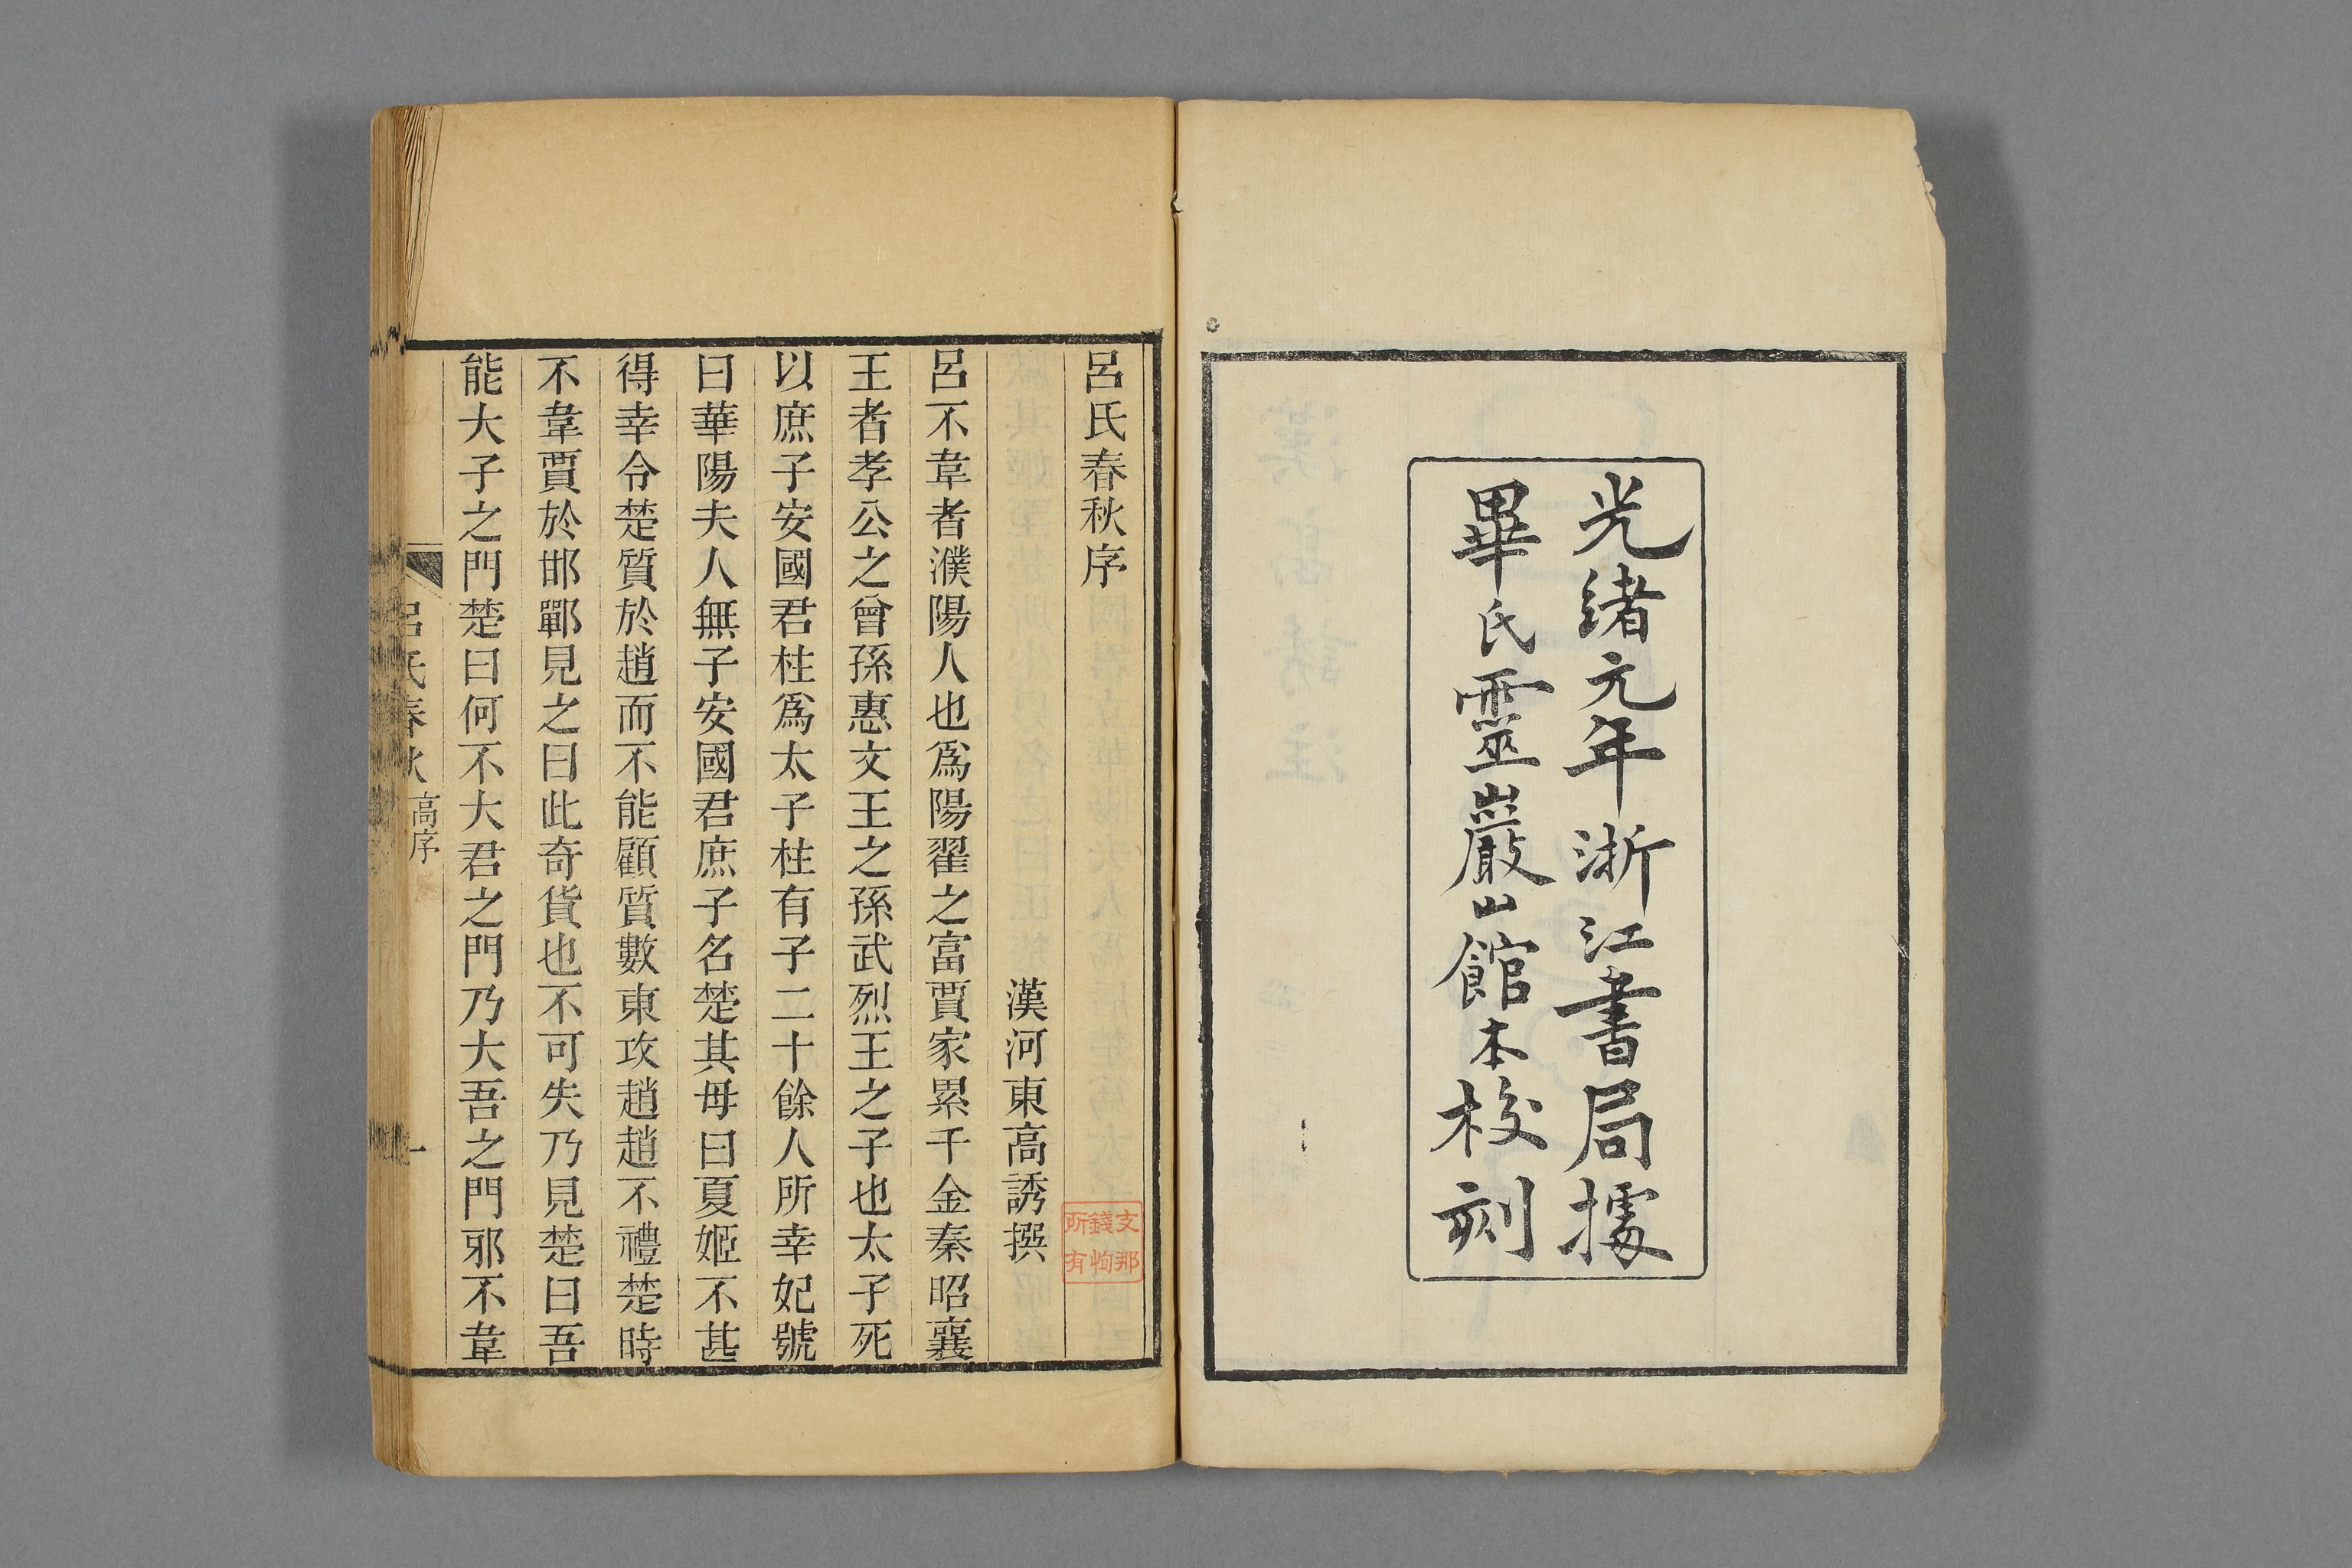 光緒元年浙江書局據
畢氏靈巖山館本校刻
呂氏春秋序
漢河東高誘撰
呂不韋者濮陽人也爲陽翟之富賈家累千金秦昭襄
王者孝公之曾孫惠文王之孫武烈王之子也太子死
以庶子安國君柱爲太子柱有子二十餘人所幸妃號
曰華陽夫人無子安國君庶子名楚其母曰夏姬不甚
得幸令楚質於趙而不能顧質數東攻趙趙不禮楚時
不韋賈於邯鄲見之曰此奇貨也不可失乃見楚曰吾
能大子之門楚曰何不大君之門乃大吾之門邪不韋
呂氏春秋 高序
一
支那
錢恂
所有